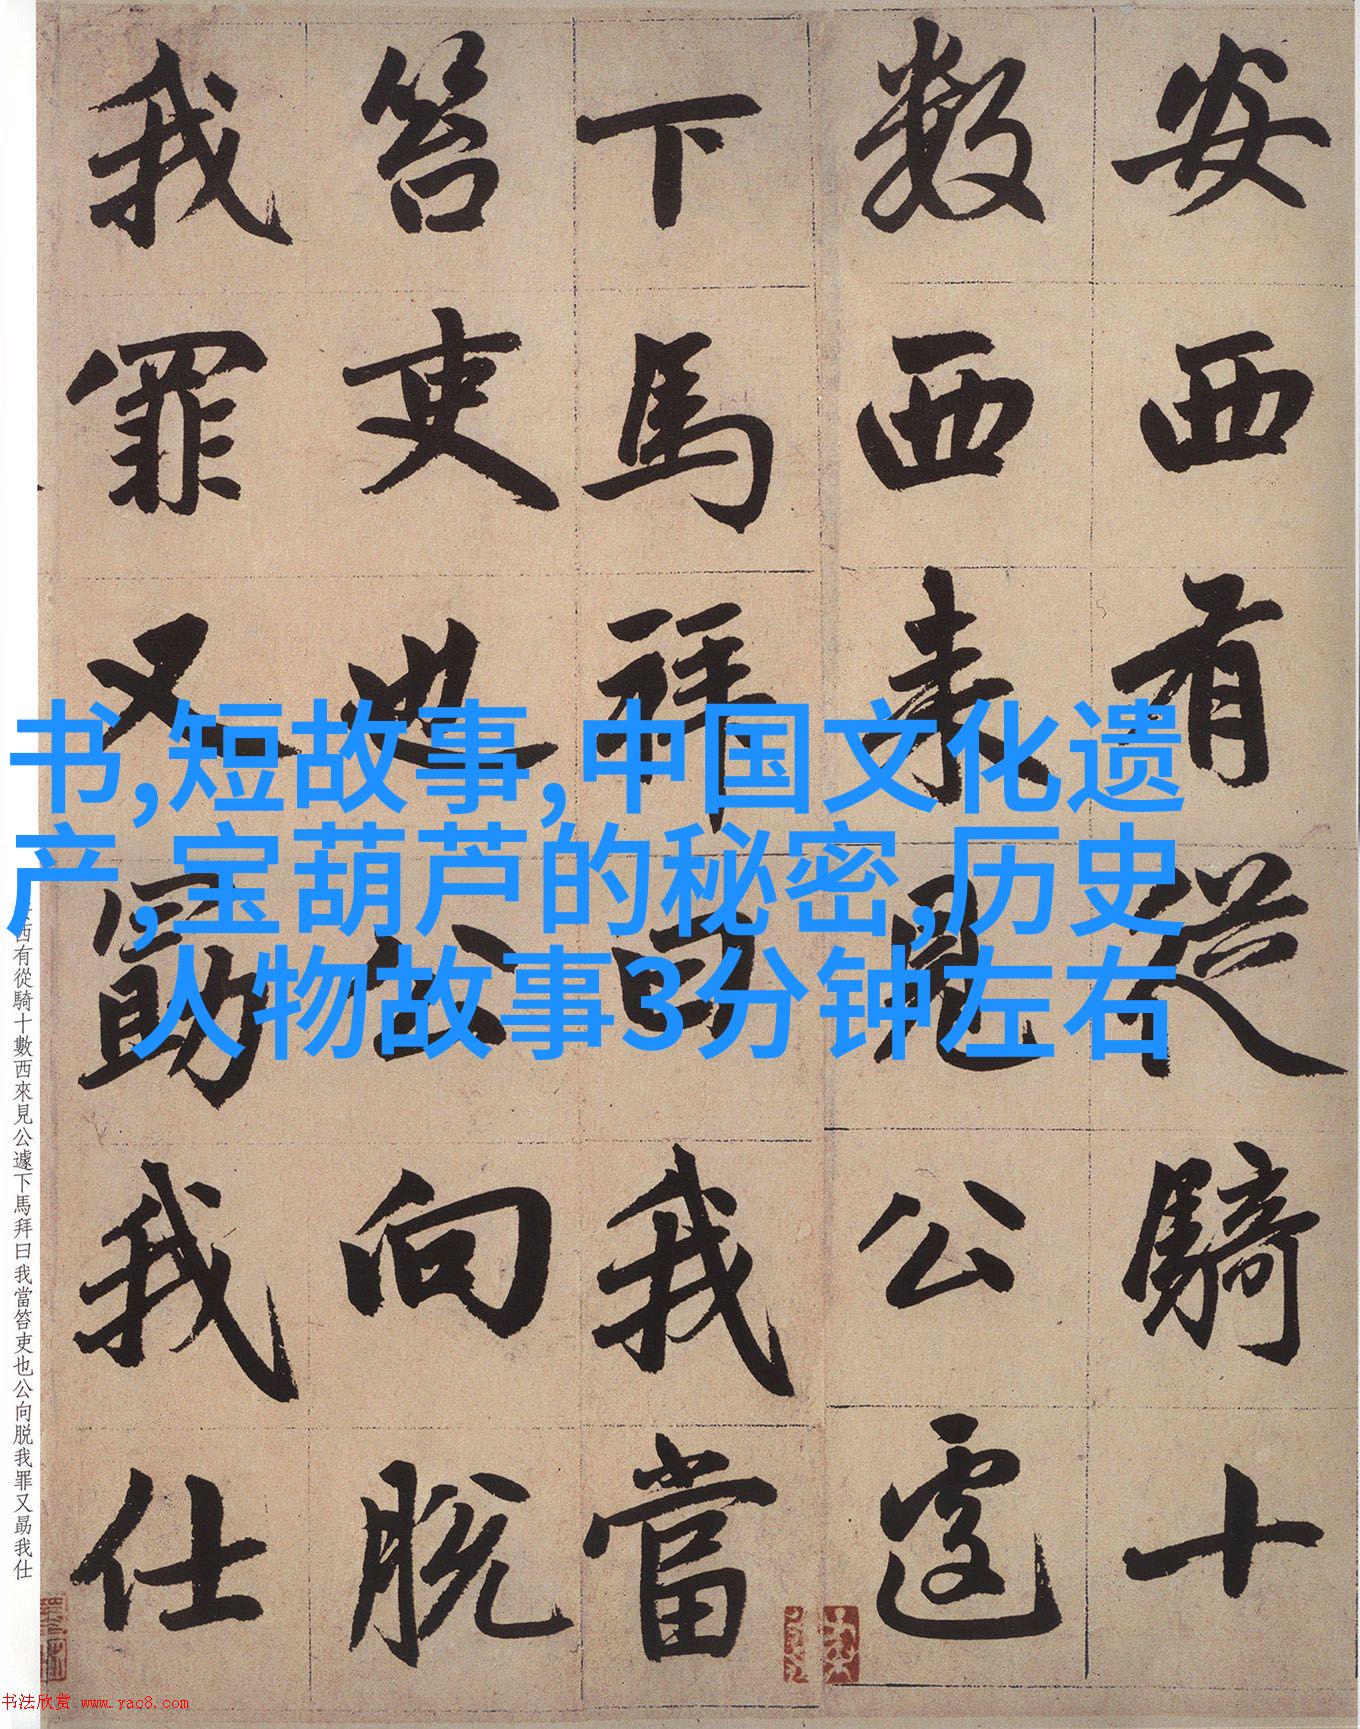 安西有從騎十
數西來見公遽
下馬拜曰我當
笞吏也公向脱
我罪又勗我仕
书,短故事,中国文化遗
产,宝葫芦的秘密,历史
人物故事3分钟左右
西有從騎十數西來見公遽下馬拜曰我當笞吏也公向脱我罪又勗我仕
书法欣赏 www.yac8.com